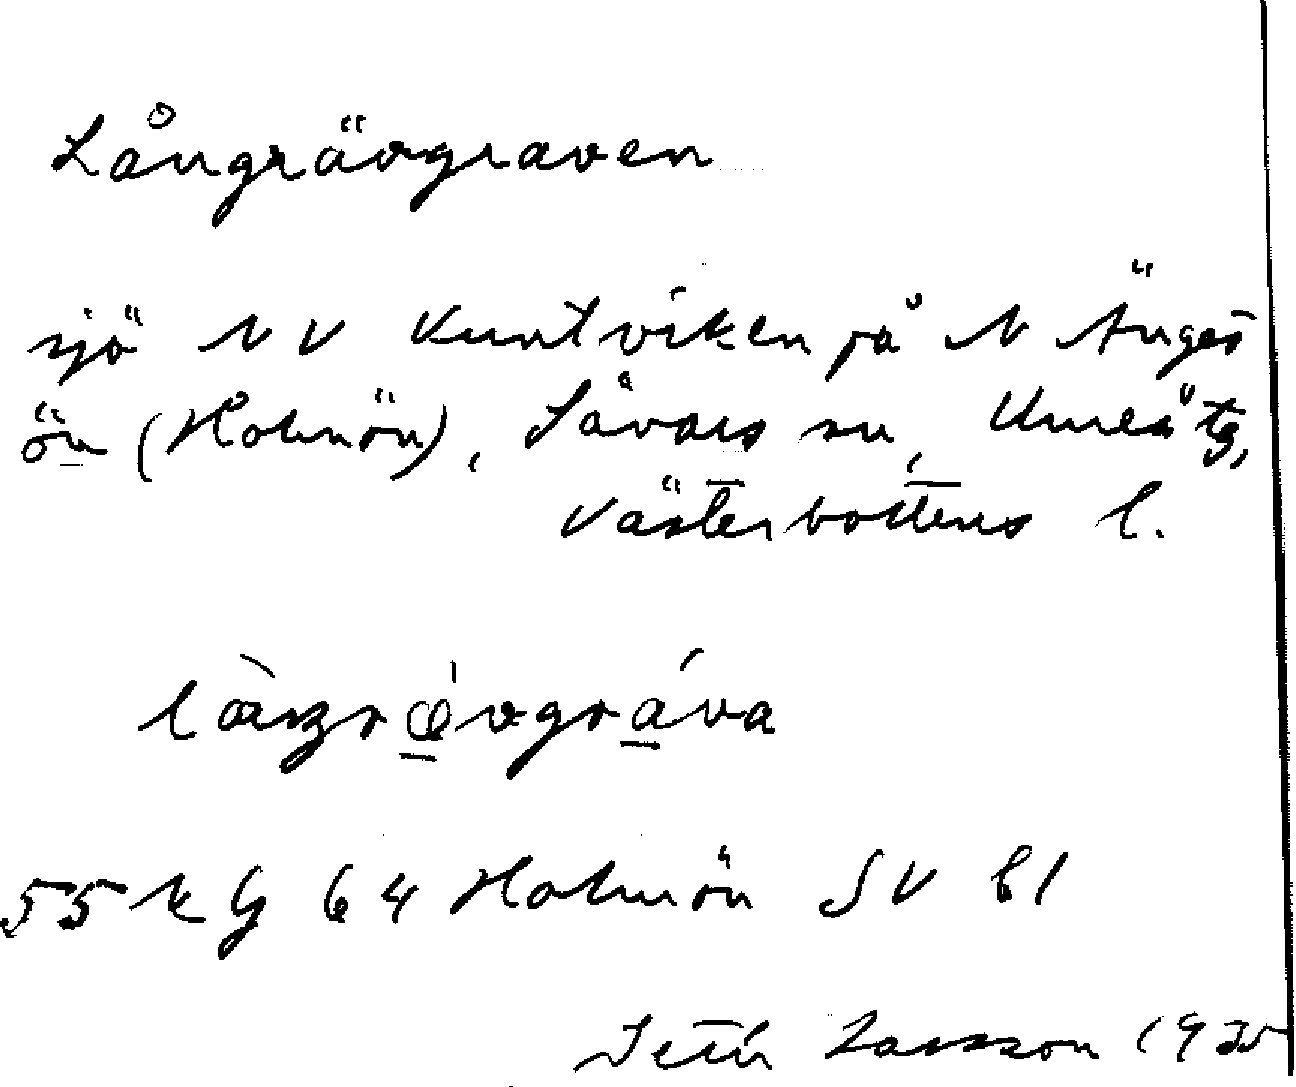 Långrävgraven
sjö NV Kuntviken på N Änges
ön (Holmön), Sävars sn, Umeå tg,
Västerbottens l.
55 kg 64 Holmön SV bl
Larsson